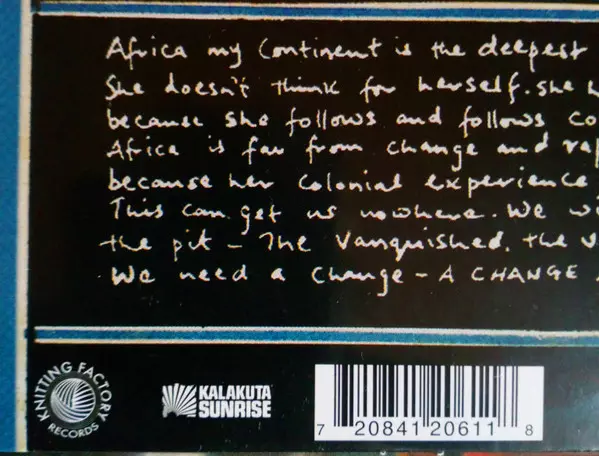 Africa my Continent is the deepest
She doesn't think for herself. She
because she follows and follows co
Africa is far from change and rap
because her Colonial experience
This can get us nowhere. We wi
the pit – The Vanquished. the v
We need a change – A CHANGE
KNITTING FACTORY RECORDS
KALAKUTA SUNRISE
7 20841 20611 8